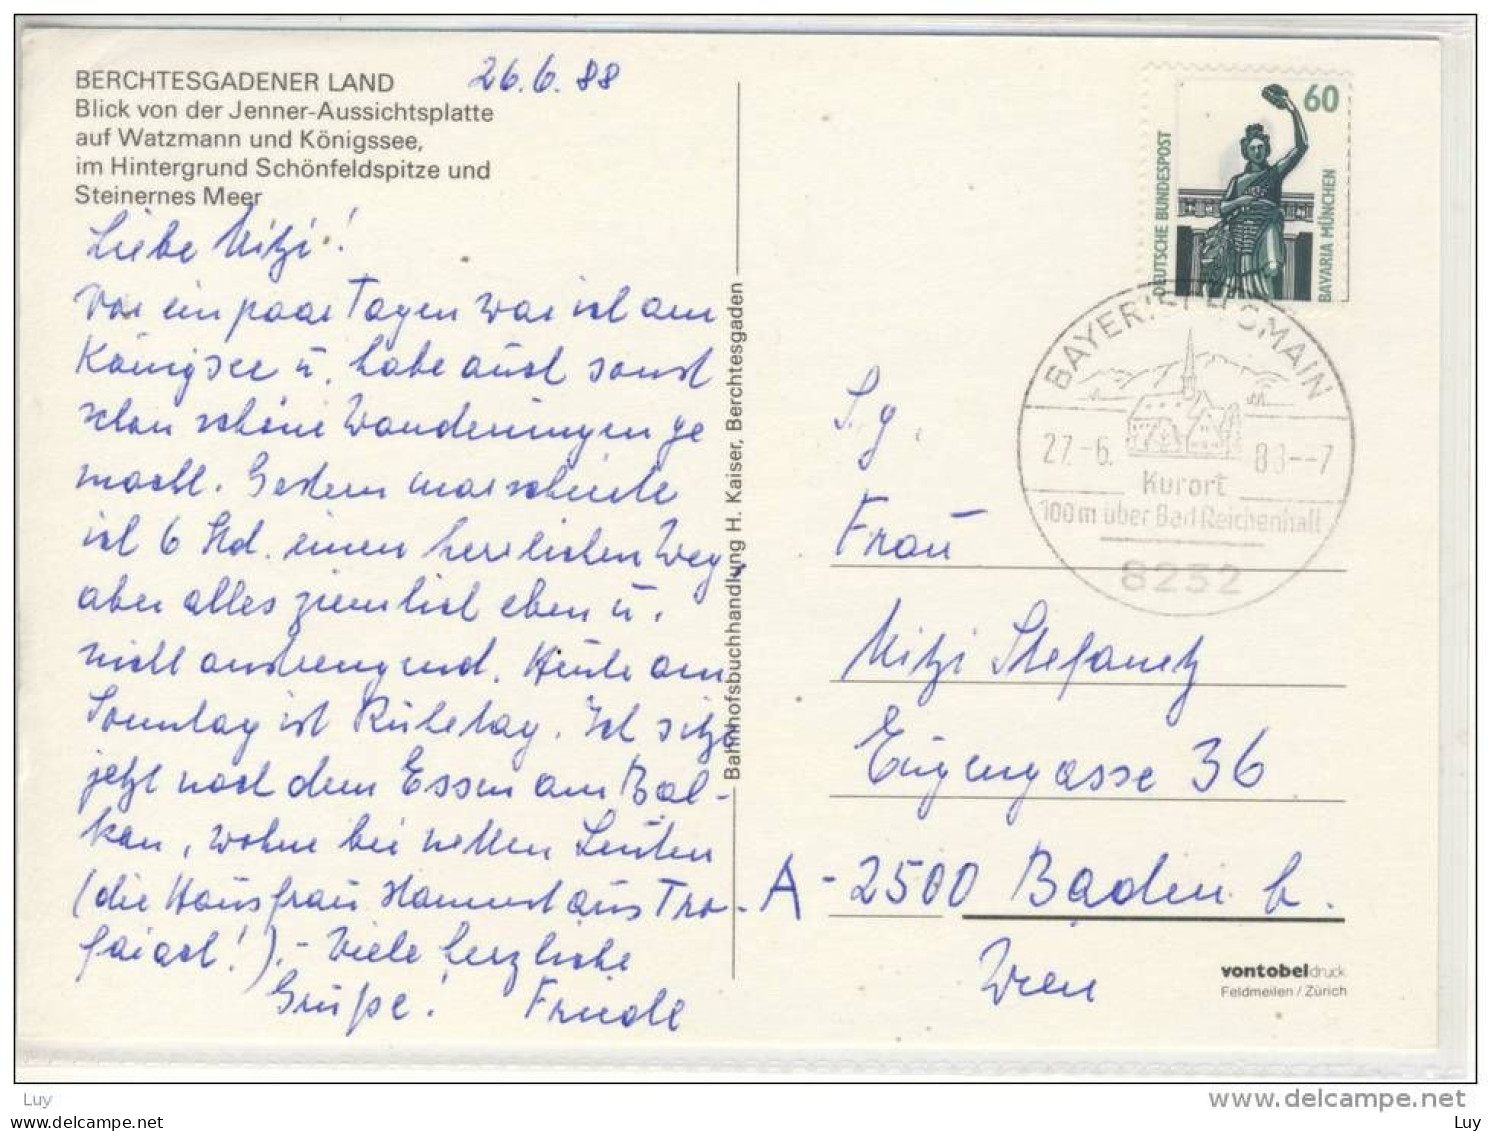 BERCHTESGADENER LAND
Blick von der Jenner-Aussichtsplatte
auf Watzmann und Königssee,
im Hintergrund Schönfeldspitze und
Steinernes Meer
26.6.88
Liebe Mitzi!
Vor ein paar Tagen war ich am
Königsee u. habe auch sonst
schon schöne Wanderungen ge
macht. Gestern marschierte
ich 6 Std. einen herrlichen Weg,
aber alles ziemlich eben u.
nicht anstrengend. Heute am
Sonntag ist Ruhetag. Ich sitze
jetzt nach dem Essen am Bal-
kon, wohne bei netten Leuten
(die Hausfrau stammt aus Tro-
faiach!).- Viele herzliche
Grüße! Friedl
Bahnhofsbuchhandlung H. Kaiser, Berchtesgaden
60
DEUTSCHE BUNDESPOST
BAVARIA MÜNCHEN
BAYERISCH GMAIN
27.-6. 88--7
Kurort
100m über Bad Reichenhall
8232
S. g.
Frau
Mitzi Stefanetz
Eugengasse 36
A-2500 Baden b.
Wien
vontobeldruck
Feldmeilen / Zürich
Luy
www.delcampe.net
Luy
Luy